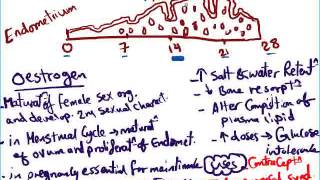 Endometrium
0 7 14 21 28
Oestrogen
- Maturatⁿ of female sex org.
and develop. 2ry sexual charact.
- in Menstrual Cycle → maturatⁿ
of ovum and proliferatⁿ of Endomet.
- in pregnancy essential for maintainance
- ↑ Salt & water Retentⁿ
- ↓ Bone resorptⁿ
- Alter Compositⁿ of
plasma lipid
- ↑ doses → Glucose
intolerance
Uses
Contracept